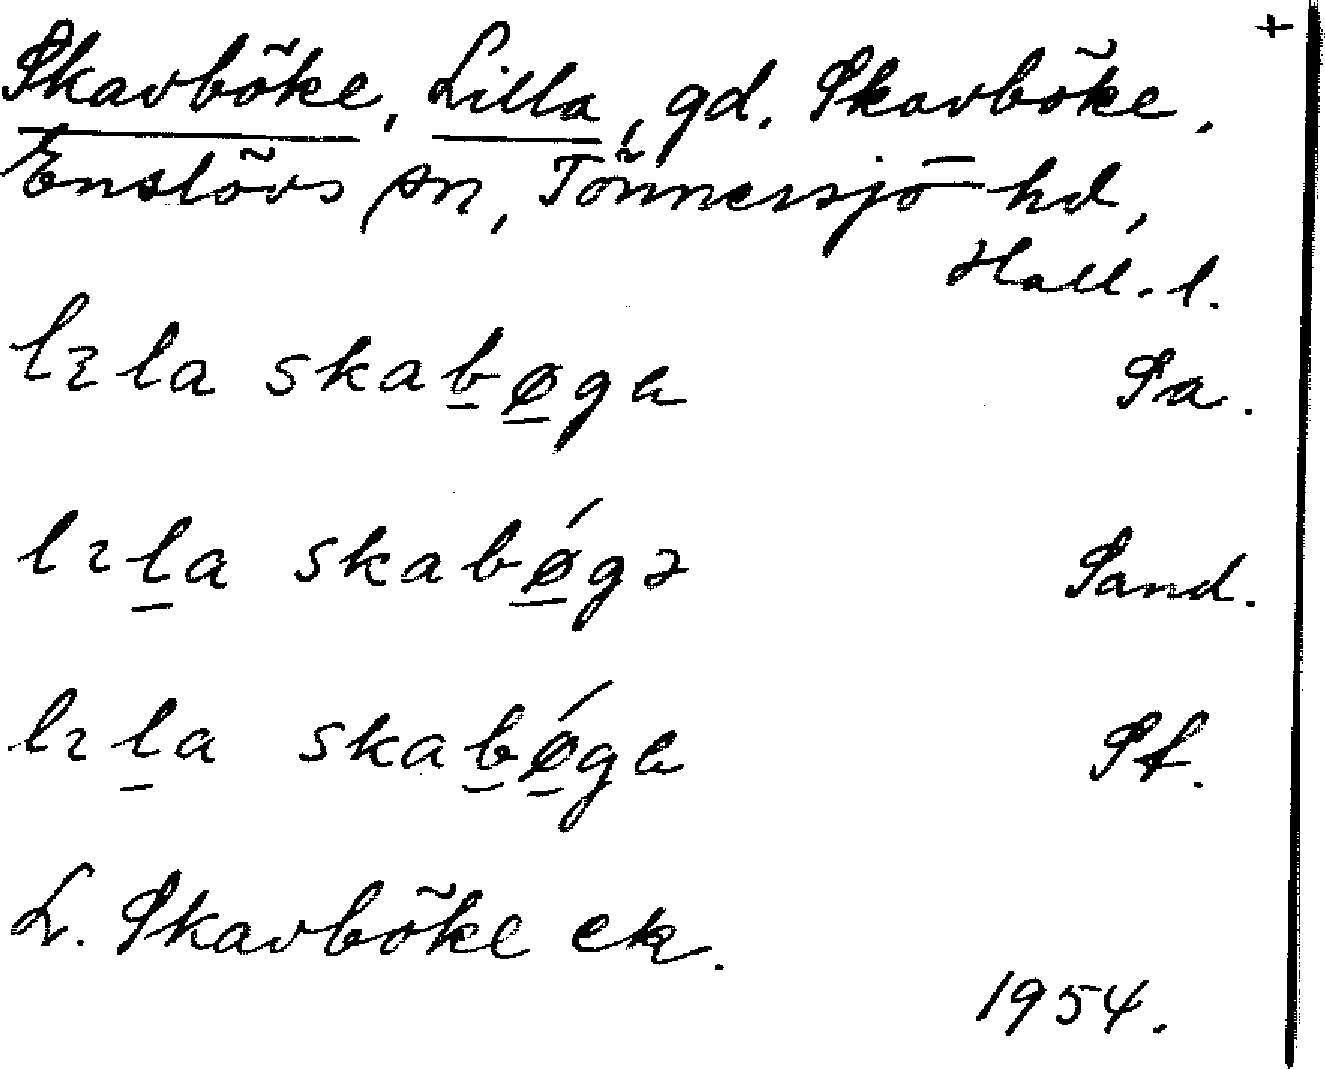 +
Skavböke, Lilla, gd. Skavböke,
Enslövs sn, Tönnersjö hd,
Hall. l.
lıla skabøga Sa.
lıla skabǿgə Sand.
lıla skabǿga St.
L. Skavböke ek.
1954.